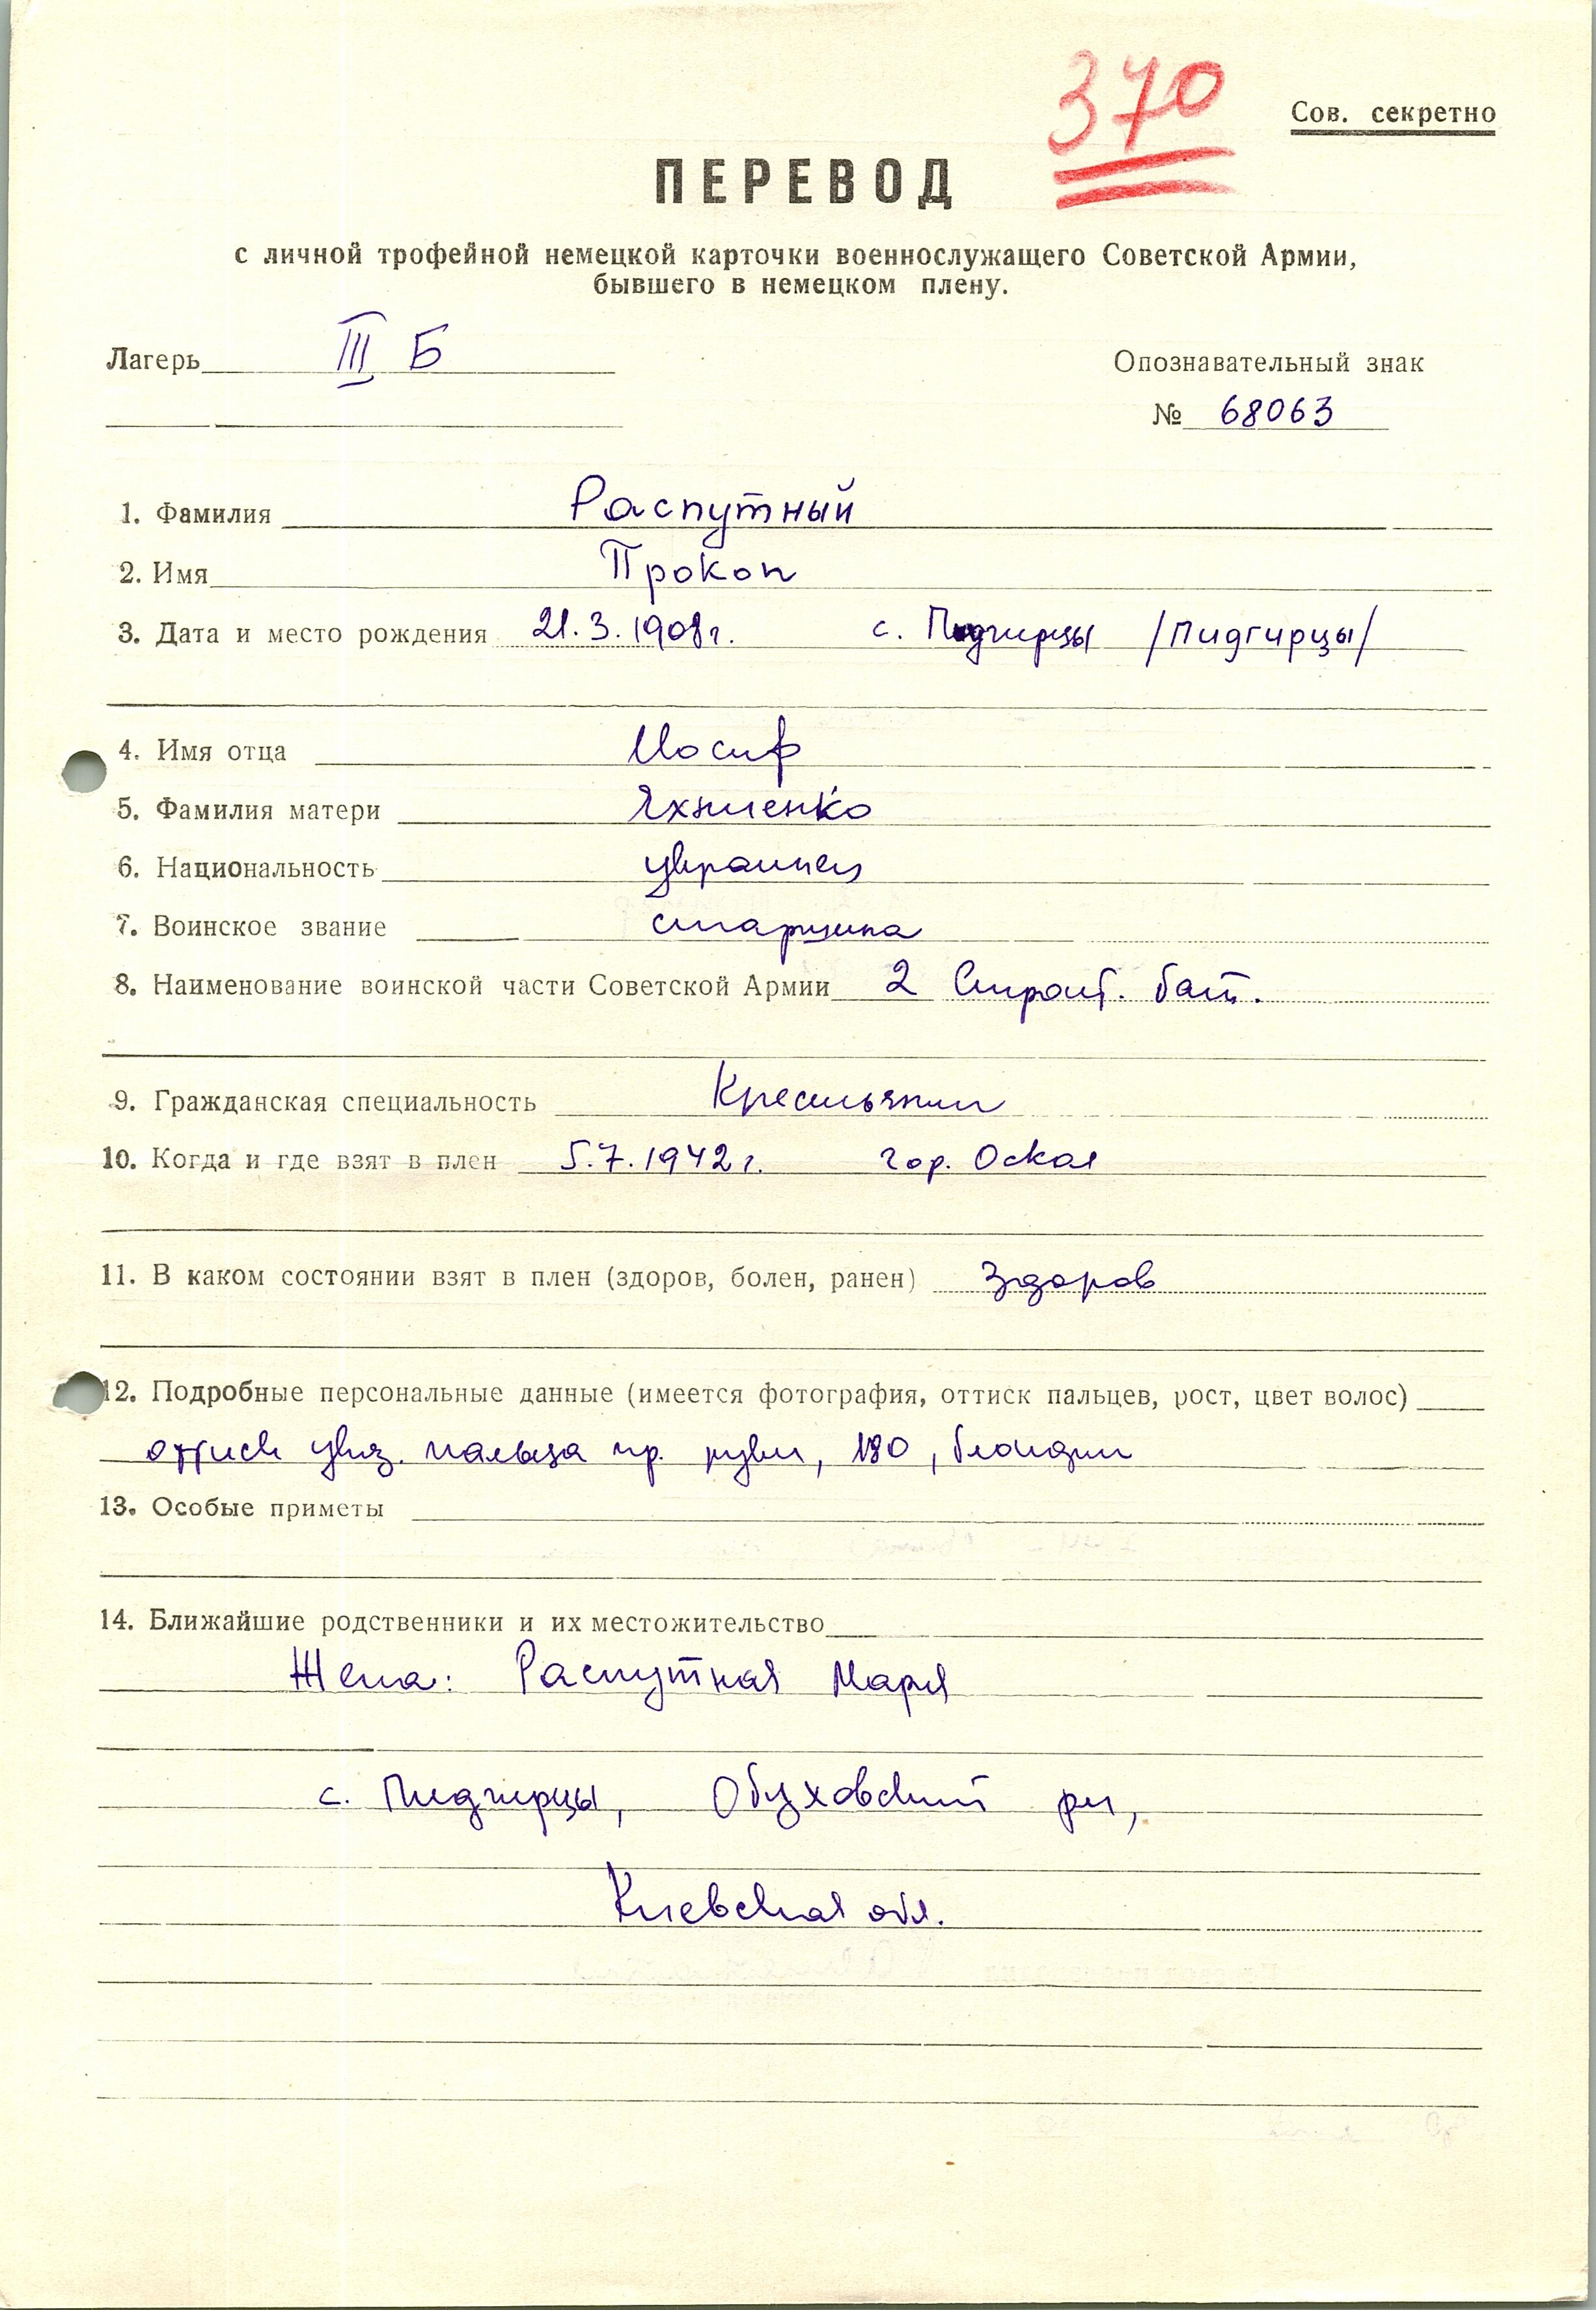 370
Сов. секретно
ПЕРЕВОД
с личной трофейной немецкой карточки военнослужащего Советской Армии,
бывшего в немецком плену.
Лагерь III Б
Опознавательный знак
№ 68063
1. Фамилия Распутный
2. Имя Прокоп
3. Дата и место рождения 21.3.1908г. с. Пидгирцы /Пидгирцы/
4. Имя отца Иосиф
5. Фамилия матери Яхниенко
6. Национальность украинец
7. Воинское звание старшина
8. Наименование воинской части Советской Армии 2 Строит. бат.
9. Гражданская специальность Крестьянин
10. Когда и где взят в плен 5.7.1942г. гор. Оскол
11. В каком состоянии взят в плен (здоров, болен, ранен) Здоров
12. Подробные персональные данные (имеется фотография, оттиск пальцев, рост, цвет волос)
оттиск указ. пальца пр. руки, 180, блондин
13. Особые приметы
14. Ближайшие родственники и их местожительство
Жена: Распутная Мария
с. Пидгирцы, Обуховский рн,
Киевская обл.